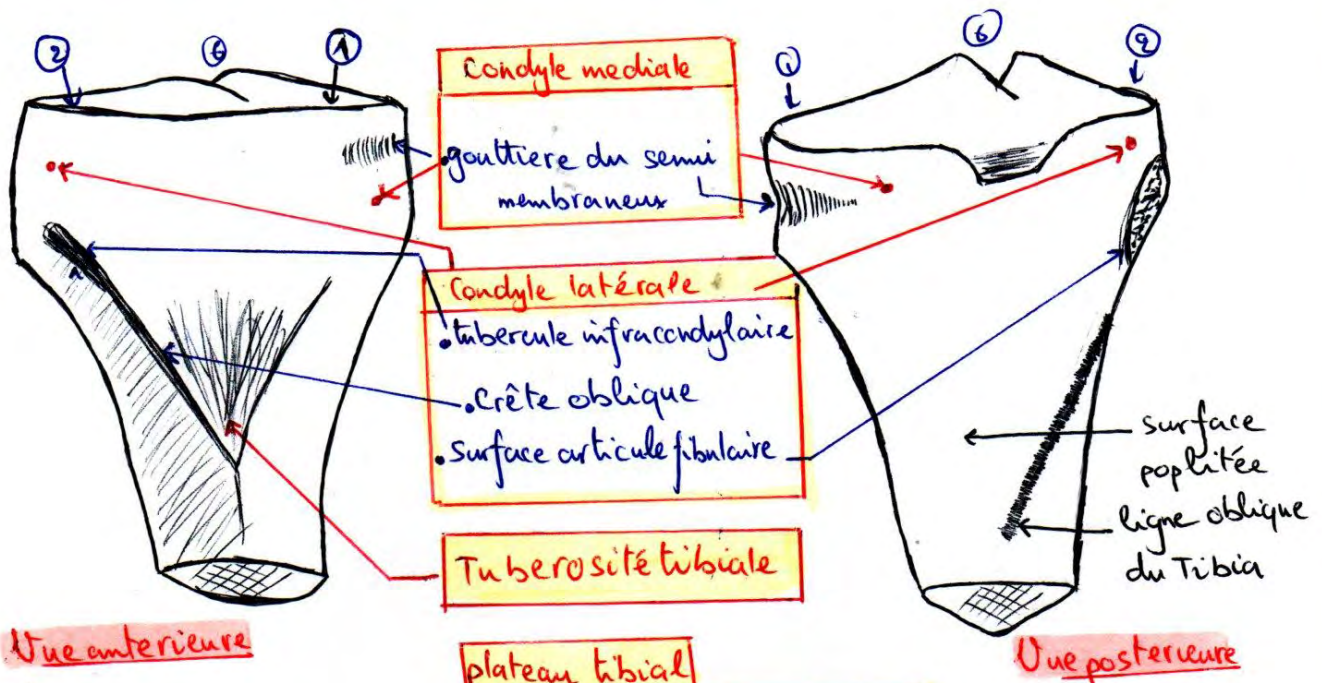 2
6
1
Condyle mediale
gouttiere du semi
membraneux
Condyle latérale
tubercule infracondylaire
Crête oblique
surface articule fibulaire
Tuberosité tibiale
plateau tibial
Vue anterieure
1
6
2
surface
poplitée
ligne oblique
du Tibia
Vue posterieure